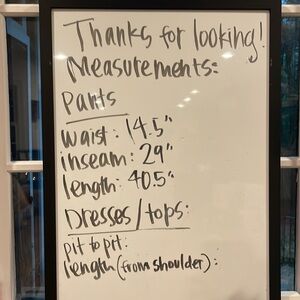 Thanks for looking!
Measurements:
Pants
waist: 14.5"
inseam: 29"
length: 40.5"
Dresses/tops:
pit to pit:
length (from shoulder):